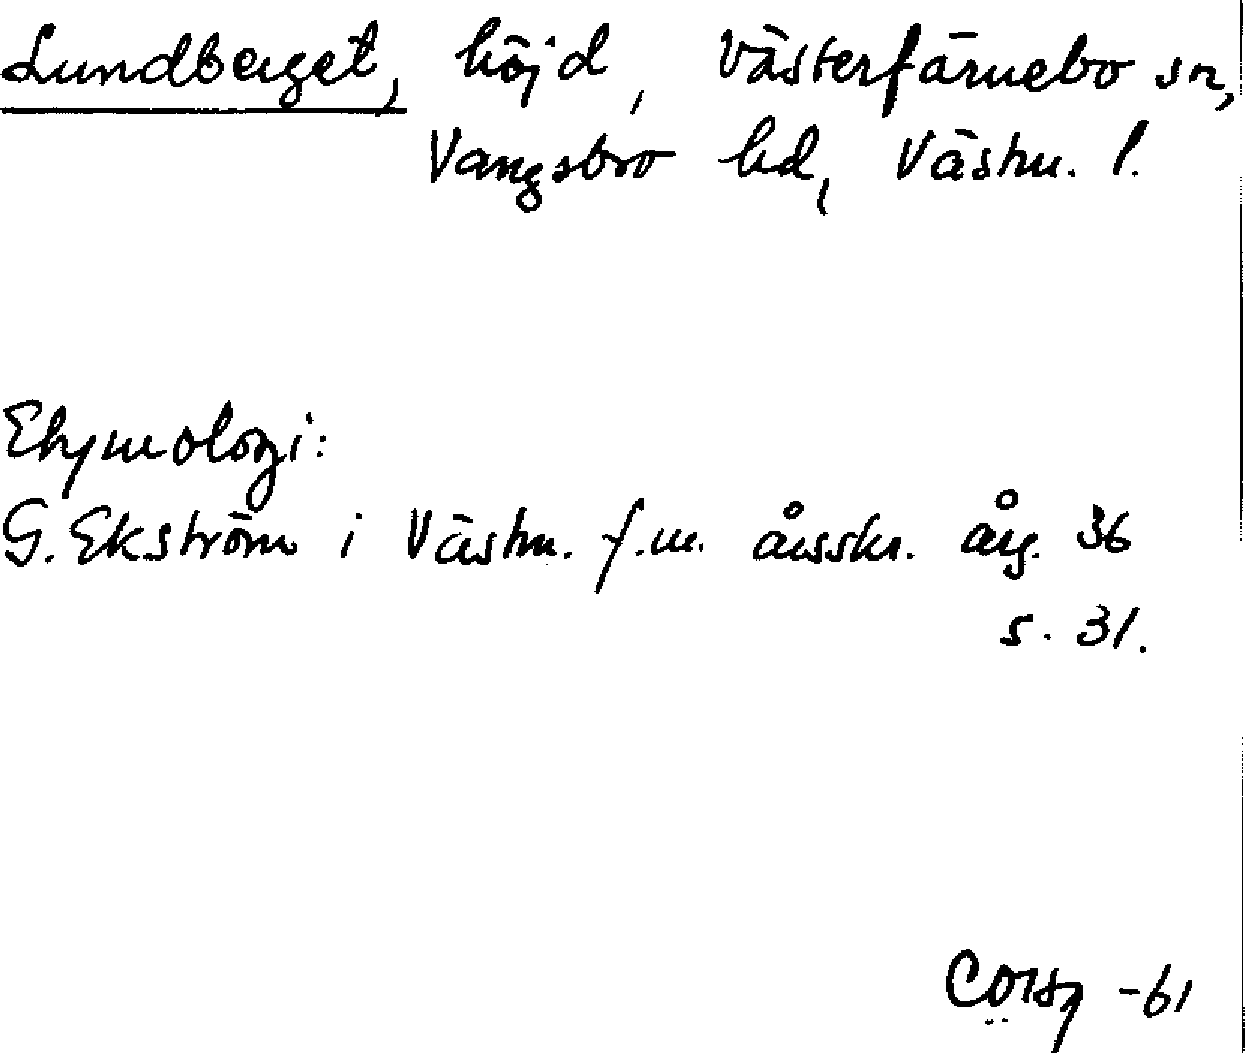 Lundberget, höjd, Västerfärnebo sn,
Vangsbro hd, Västm. l.
Etymologi:
G. Ekström i Västm. f.m. årsskr. årg. 36
s. 31.
-61